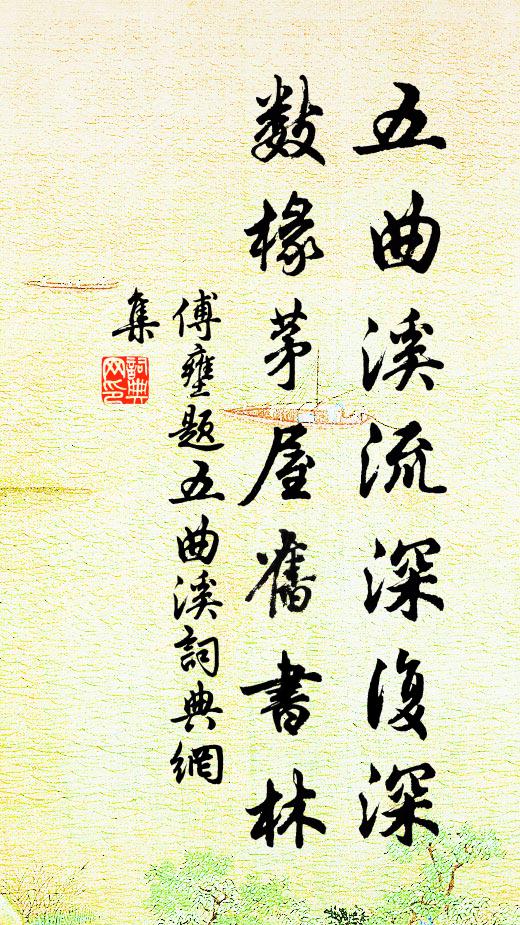 五曲溪流深復深
數椽茅屋舊書林
傅壅題五曲溪詞典網
集
詞典
网印